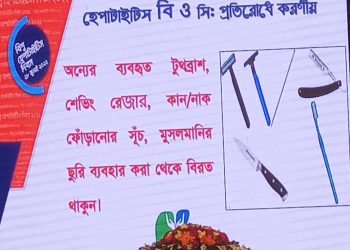 হেপাটাইটিস বি ও সি: প্রতিরোধে করণীয়
বিশ্ব
হেপাটাইটিস
দিবস
২৮ জুলাই ২০২২
অন্যের ব্যবহৃত টুথব্রাশ,
শেভিং রেজার, কান/নাক
ফোঁড়ানোর সূঁচ, মুসলমানির
ছুরি ব্যবহার করা থেকে বিরত
থাকুন।